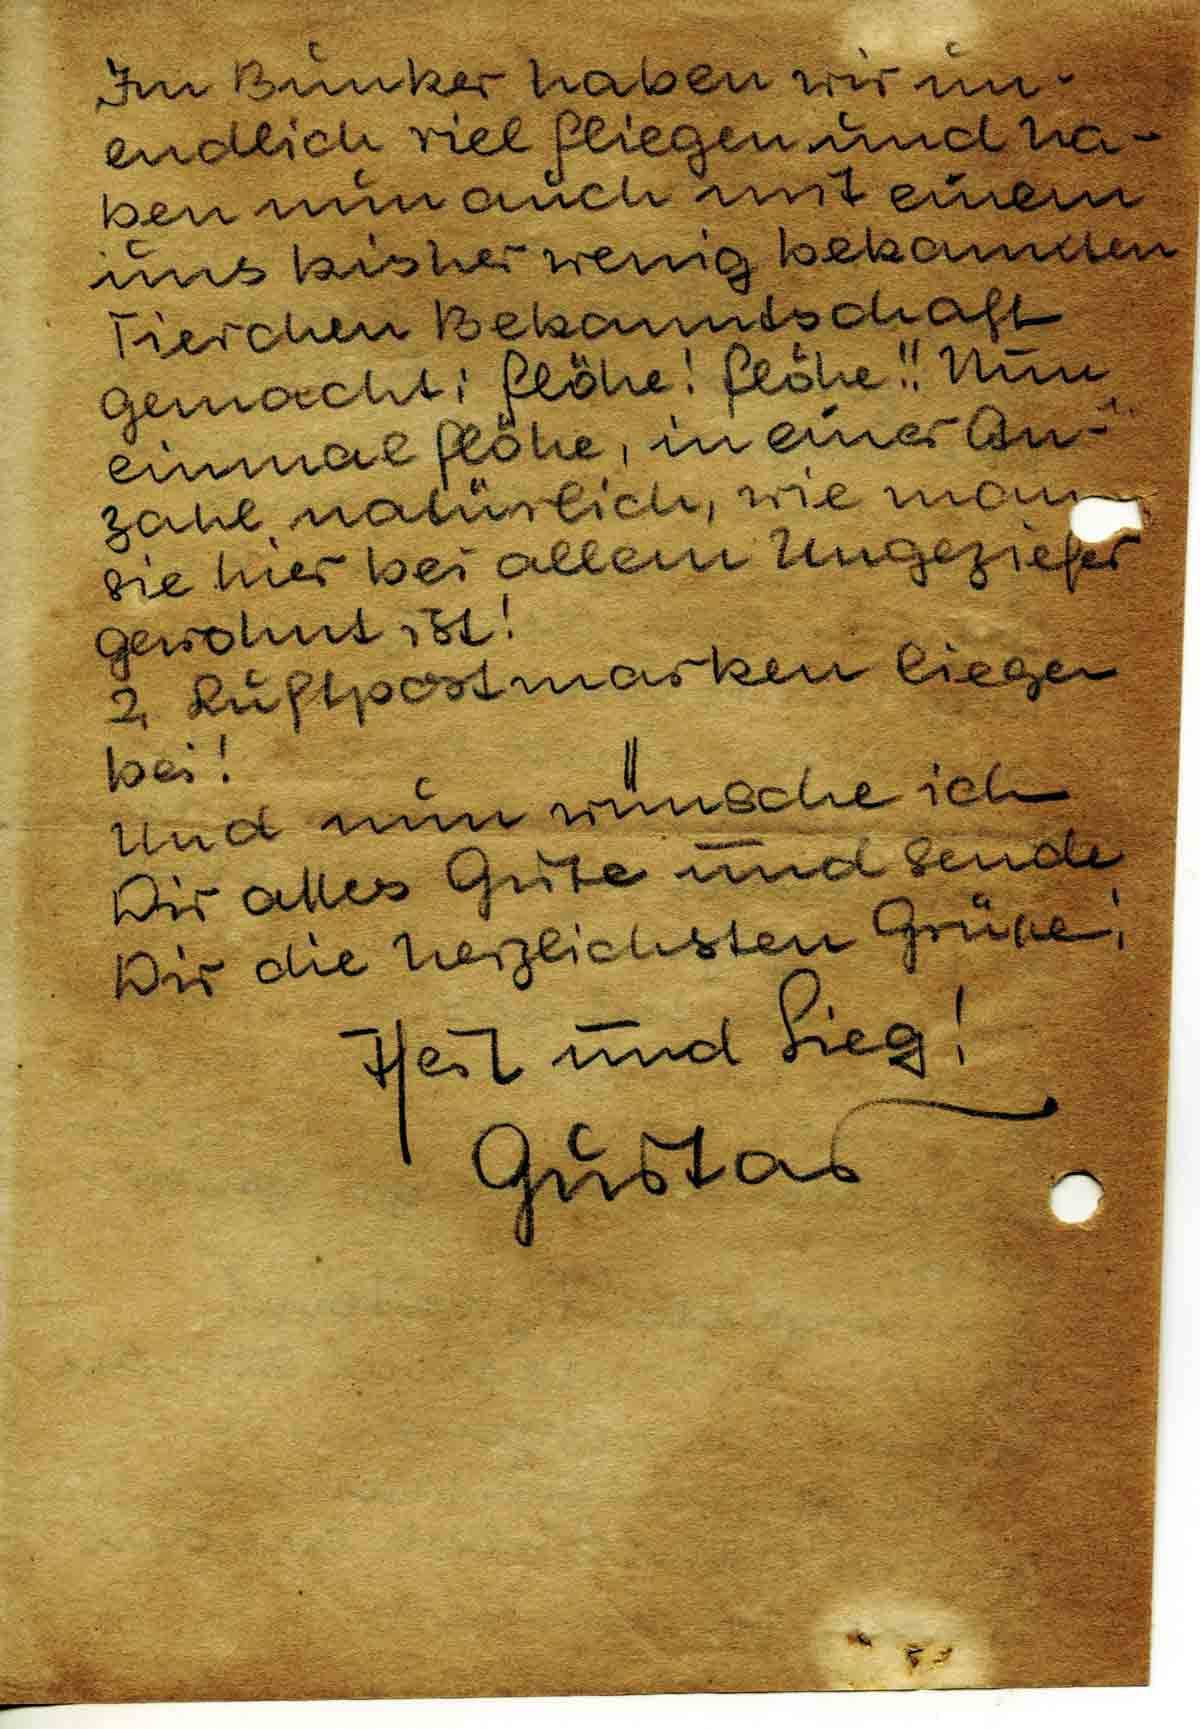 Im Bunker haben wir un-
endlich viel Fliegen und ha-
ben nun auch mit einem
uns bisher wenig bekannten
Tierchen Bekanntschaft
gemacht: Flöhe! Flöhe!! Nun
einmal Flöhe, in einer An-
zahl natürlich, wie man
sie hier bei allem Ungeziefer
gewohnt ist!
2 Luftpostmarken liegen
bei!
Und nun wünsche ich
Dir alles Gute und sende
Dir die herzlichsten Grüße!
Heil und Sieg!
Gustav